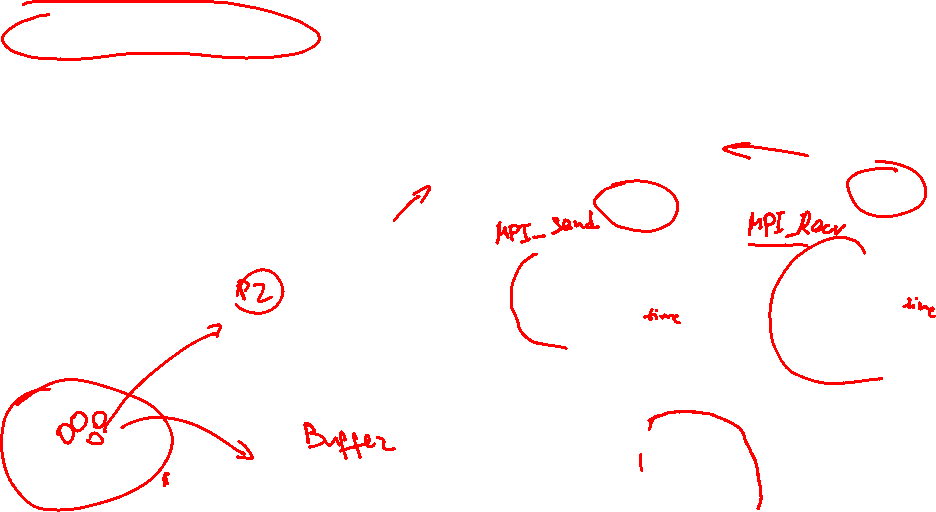 MPI_Send
MPI_Recv
P2
time
time
Buffer